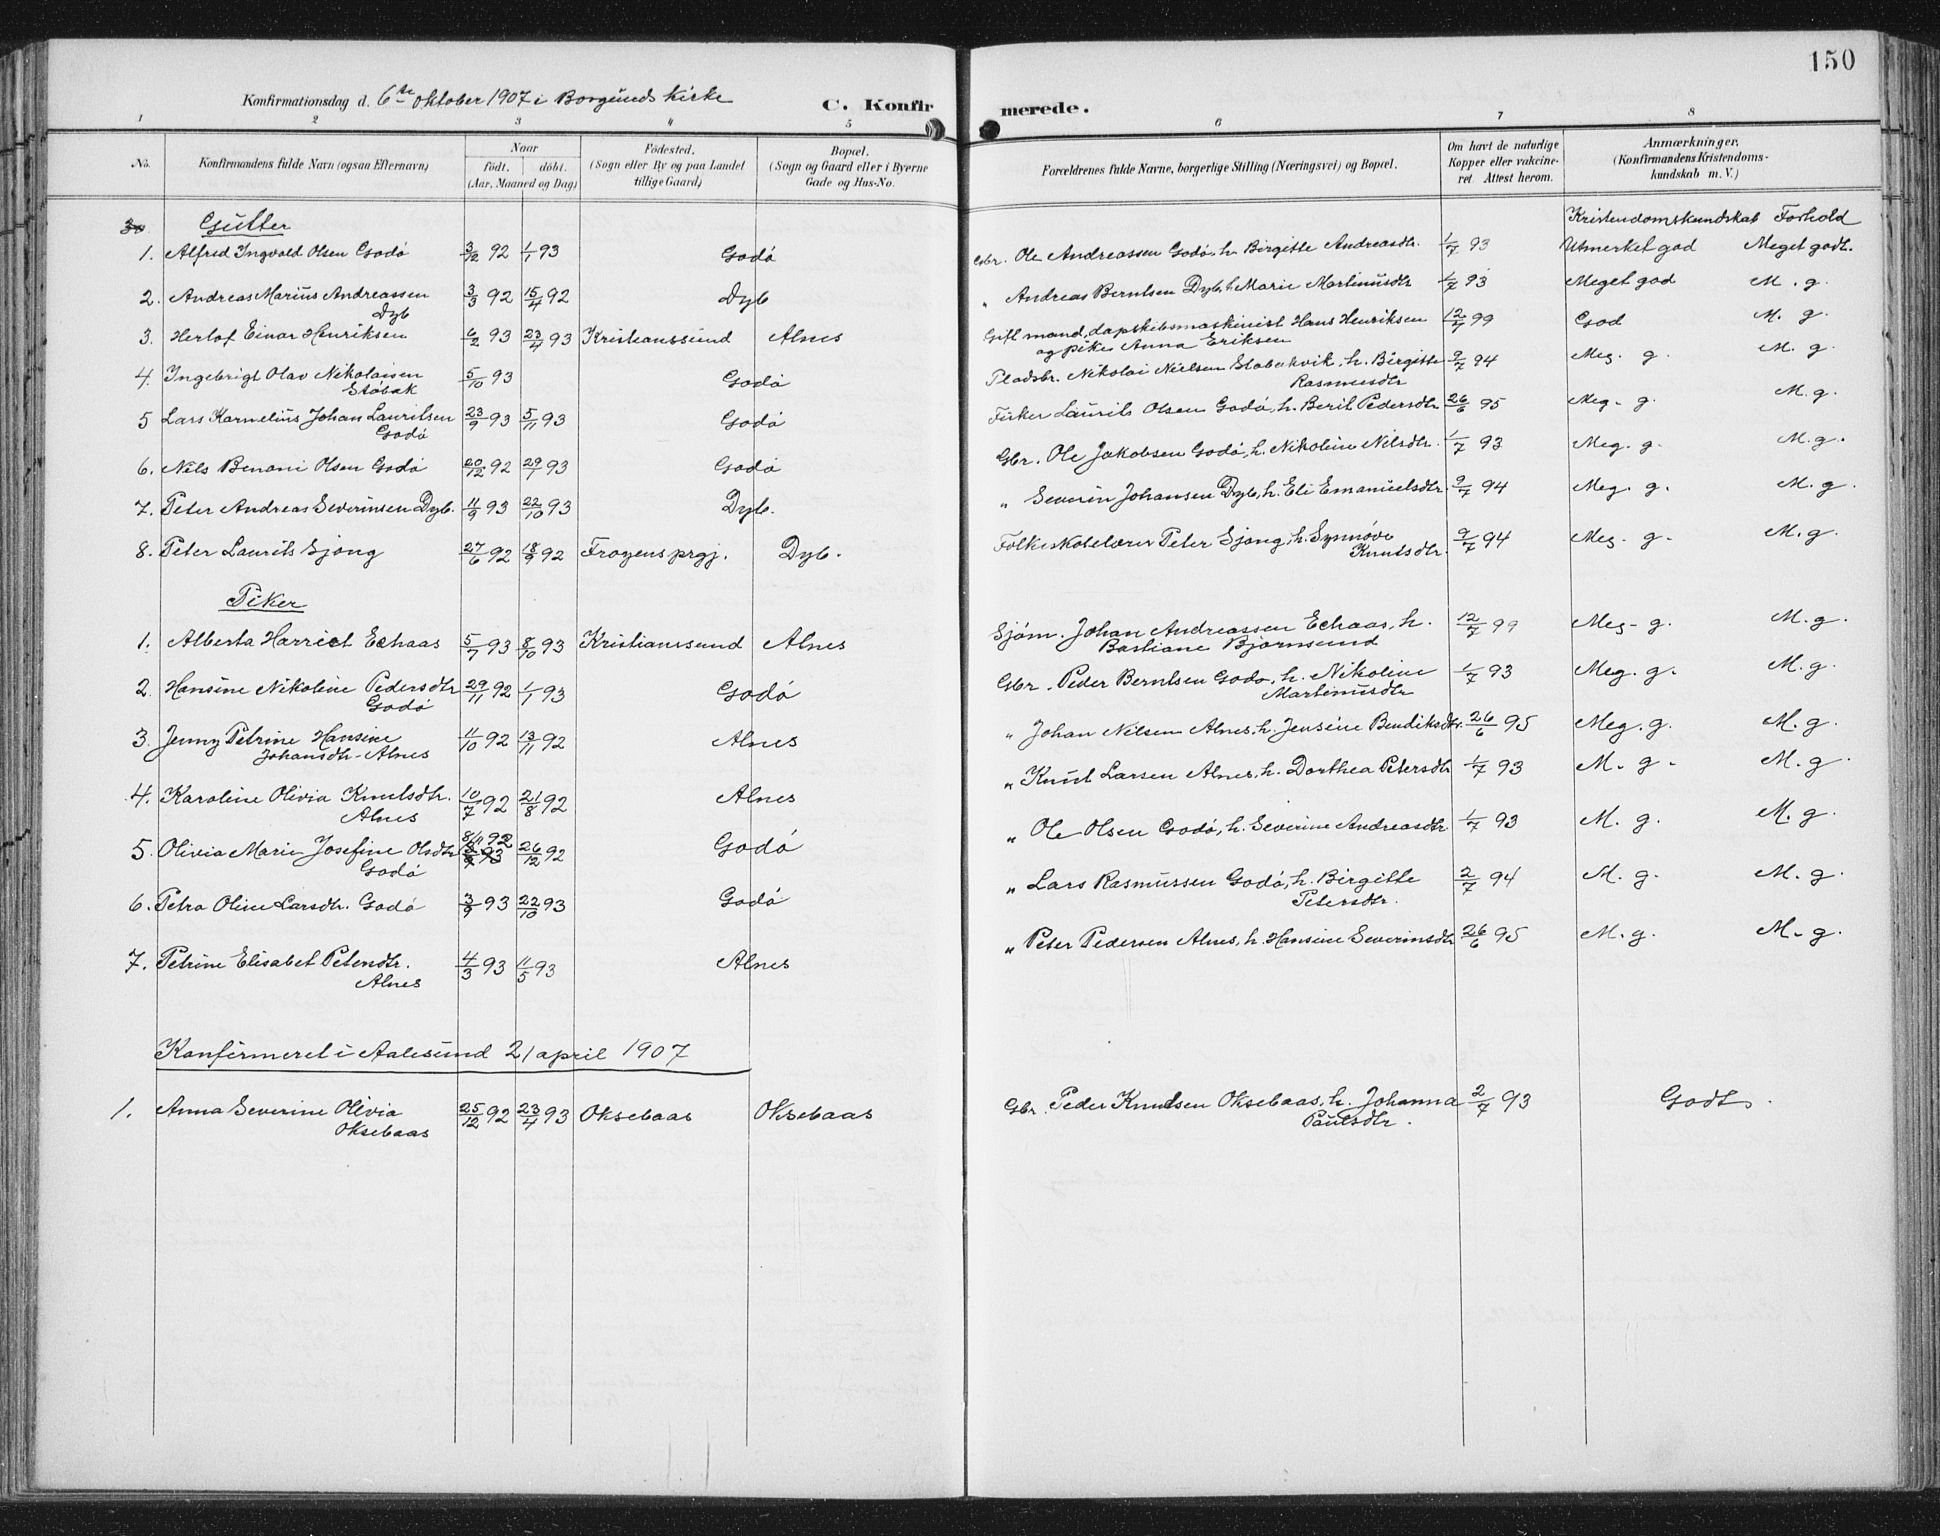 150
Konfirmationsdag d. 6te oktober 1907 i Borgunds Kirke C. Konfir merede.
1 2 3 4 5 6 7 8
No. Konfirmandens fulde Navn (ogsaa Efternavn) Naar født. døbt. (Aar, Maaned og Dag) Fødested. (Sogn eller By og paa Landet tillige Gaard) Bopæl. (Sogn og Gaard eller i Byerne Gade og Hus-No. Forældrenes fulde Navne, borgerlige Stilling (Næringsvei) og Bopæl. Om havt de naturlige Kopper eller vakcineret. Attest herom. Anmærkninger. (Konfirmandens Kristendomskundskab m. V.)
Gutter Kristendomskundskab Forhold
1. Alfred Ingvald Olsen Godø 3/12 92 1/1 93 Godø Gbr. Ole Andreassen Godø, h. Birgitte Andreasdtr. 1/7 93 Utmerket god Meget godt.
2. Andreas Marius Andreassen Dyb 3/3 92 15/4 92 Dyb " Andreas Berntsen Dyb, h. Marie Martinusdtr 1/7 93 Meget god M. g.
3. Herlof Einar Henriksen 6/2 93 23/4 93 Kristianssund Alnes Gift mand, dapskibsmaskinist Hans Henriksen og pike Anna Eriksen 12/7 99 God M. g.
4. Ingebrigt Olav Nikolaisen Støbak 5/10 93 Godø Pladsbr. Nikolai Nielsen Stobakvik, h. Birgitte Rasmusdtr 9/7 94 Meg. g. M. g.
5 Lars Kornelius Johan Lauritsen Godø 23/9 93 5/11 93 Godø Fisker Laurits Olsen Godø, h. Berit Pedersdtr 26/6 95 Meg. g. M. g.
6. Nils Benoni Olsen Godø 20/12 92 29/1 93 Godø Gbr. Ole Jakobsen Godø, h. Nikoline Nilsdtr. 1/7 93 Meg. g. M. g.
7. Peter Andreas Severinsen Dyb. 11/9 93 22/10 93 Dyb. " Severin Johansen Dyb, h. Eli Emanuelsdtr. 9/7 94 Meg. g. M. g.
8. Peter Laurits Sjong 27/6 92 18/9 92 Frøyens prgj. Dyb. Folkeskolelærer Peter Sjong, h. Synnøve Knutsdtr. 9/7 94 Meg. g. M. g.
Piker
1. Alberta Harriet Echaas 5/7 93 8/10 93 Kristianssund Alnes Sjøm. Johan Andreassen Echaas, h. Bastiane Bjørnsund 12/7 99 Meg. g. M. g.
2. Hansine Nikoline Pedersdtr Godø 29/11 92 1/1 93 Godø Gbr. Peder Berntsen Godø, h. Nikoline Martinusdtr 1/7 93 Meg. g. M. g.
3. Jenny Petrine Hansine Johansdtr. Alnes 11/10 92 13/11 92 Alnes " Johan Nilsen Alnes, h. Jensine Bendiksdtr. 26/6 95 Meg. g. M. g.
4. Karoline Olivia Knutsdtr. Alnes 10/7 92 21/8 92 Alnes " Knut Larsen Alnes, h. Dorthea Petersdtr 1/7 93 M. g. M. g.
5. Olivia Marie Josefine Olsdtr Godø 8/11 92 26/12 92 Godø " Ole Olsen Godø, h. Severine Andreasdtr. 1/7 93 M. g. M. g.
6. Petra Oline Larsdtr. Godø 3/9 93 22/10 93 Godø " Lars Rasmussen Godø, h. Birgitte Petersdtr. 2/7 94 M. g. M. g.
7. Petrine Elisabet Petersdtr. Alnes 4/3 93 11/5 93 Alnes " Peter Pedersen Alnes, h. Hansine Severinsdtr 26/6 95 M. g. M. g.
Konfirmeret i Aalesund 21 april 1907
1. Anna Severine Olivia Oksebaas 25/12 92 23/4 93 Oksebaas Oksebaas Gbr. Peder Knudsen Oksebaas, h. Johanna Paulsdtr. 2/7 93 Godt.